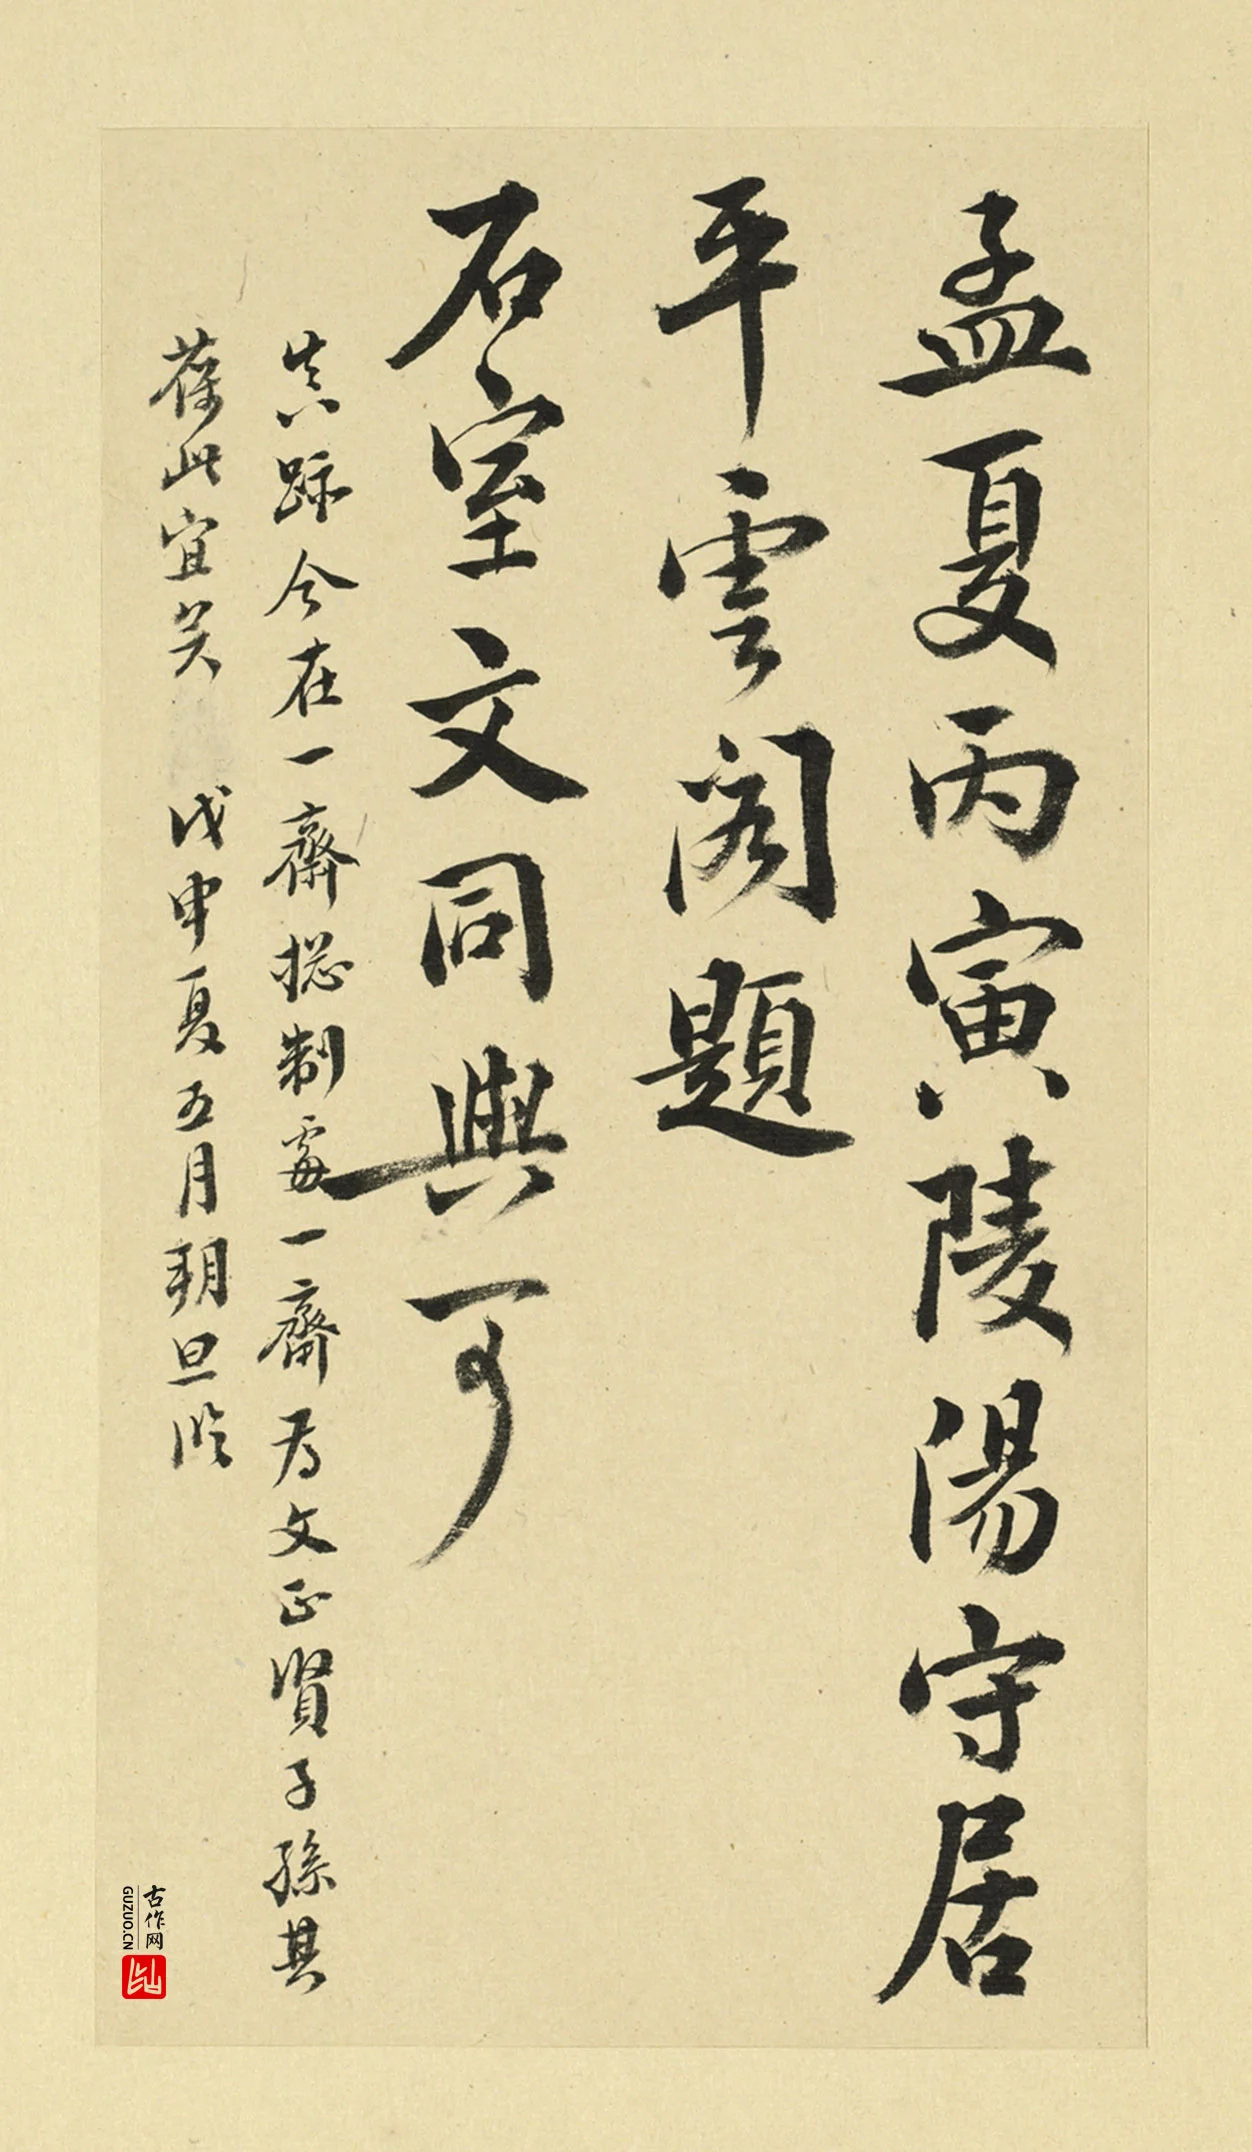 孟夏丙寅陵陽守居
平雲閣題
石室文同與可
真跡今在一齋揔制處一齋為文正賢子孫其
葆此宜矣 戊申夏五月朔旦臨
古作网
GUZUO.CN